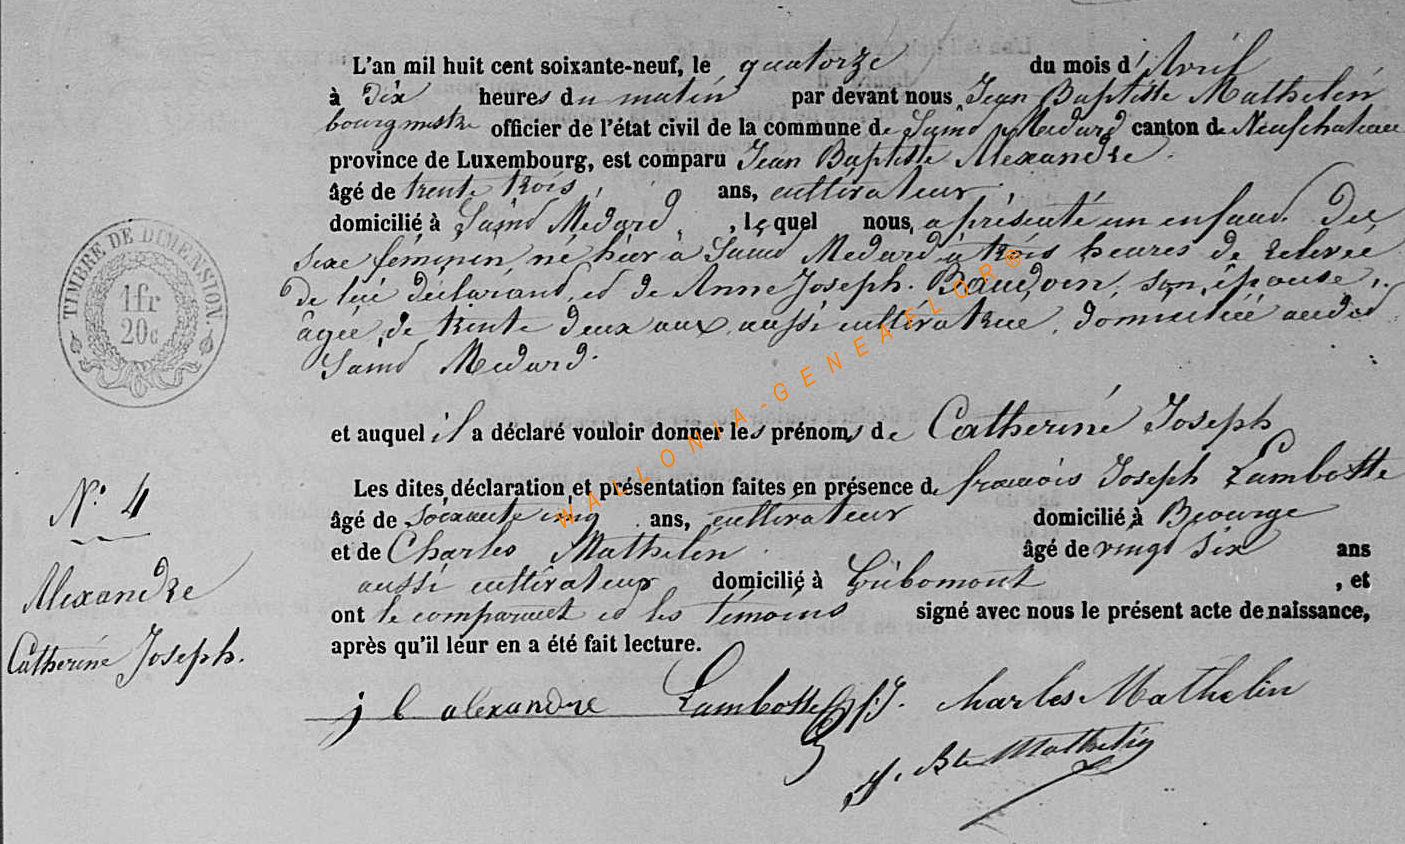 L'an mil huit cent soixante-neuf, le quatorze du mois d'Avril
à Dix heures du matin par devant nous, Jean Baptiste Mathelin
bourgmestre officier de l'état civil de la commune de Saind Médard canton de Neufchateau
province de Luxembourg, est comparu Jean Baptiste Alexandre.
âgé de trente trois, ans, cultivateur
domicilié à Saind Médard, lequel nous, a présenté un enfand Du
Sexe féminin, né hier à Saind Médard à trois heures de relevée
de lui déclarand, ed de Anne Joseph Baudoin, son épouse,
âgée de trente deux ans, aussi cultivatrice, domiciliée audid
Saind Medard.
et auquel il a déclaré vouloir donner les prénoms de Catherine Joseph
Les dites déclaration et présentation faites en présence de francois Joseph Lambotte
âgé de soixante cinq ans, cultivateur domicilié à
et de Charles Mathelin âgé de vingd Six ans
aussi cultivateur domicilié à Gribomont, et
ont le comparant ed les témoins signé avec nous le présent acte de naissance,
après qu'il leur en a été fait lecture.
j b alexandre Lambotte f.J. charles Mathelin
J. Bte Mathelin
TIMBRE DE DIMENSION.
1fr
20c
N° 4
Alexandre
Catherine Joseph.
WALLONIA-GENEAFLOR®